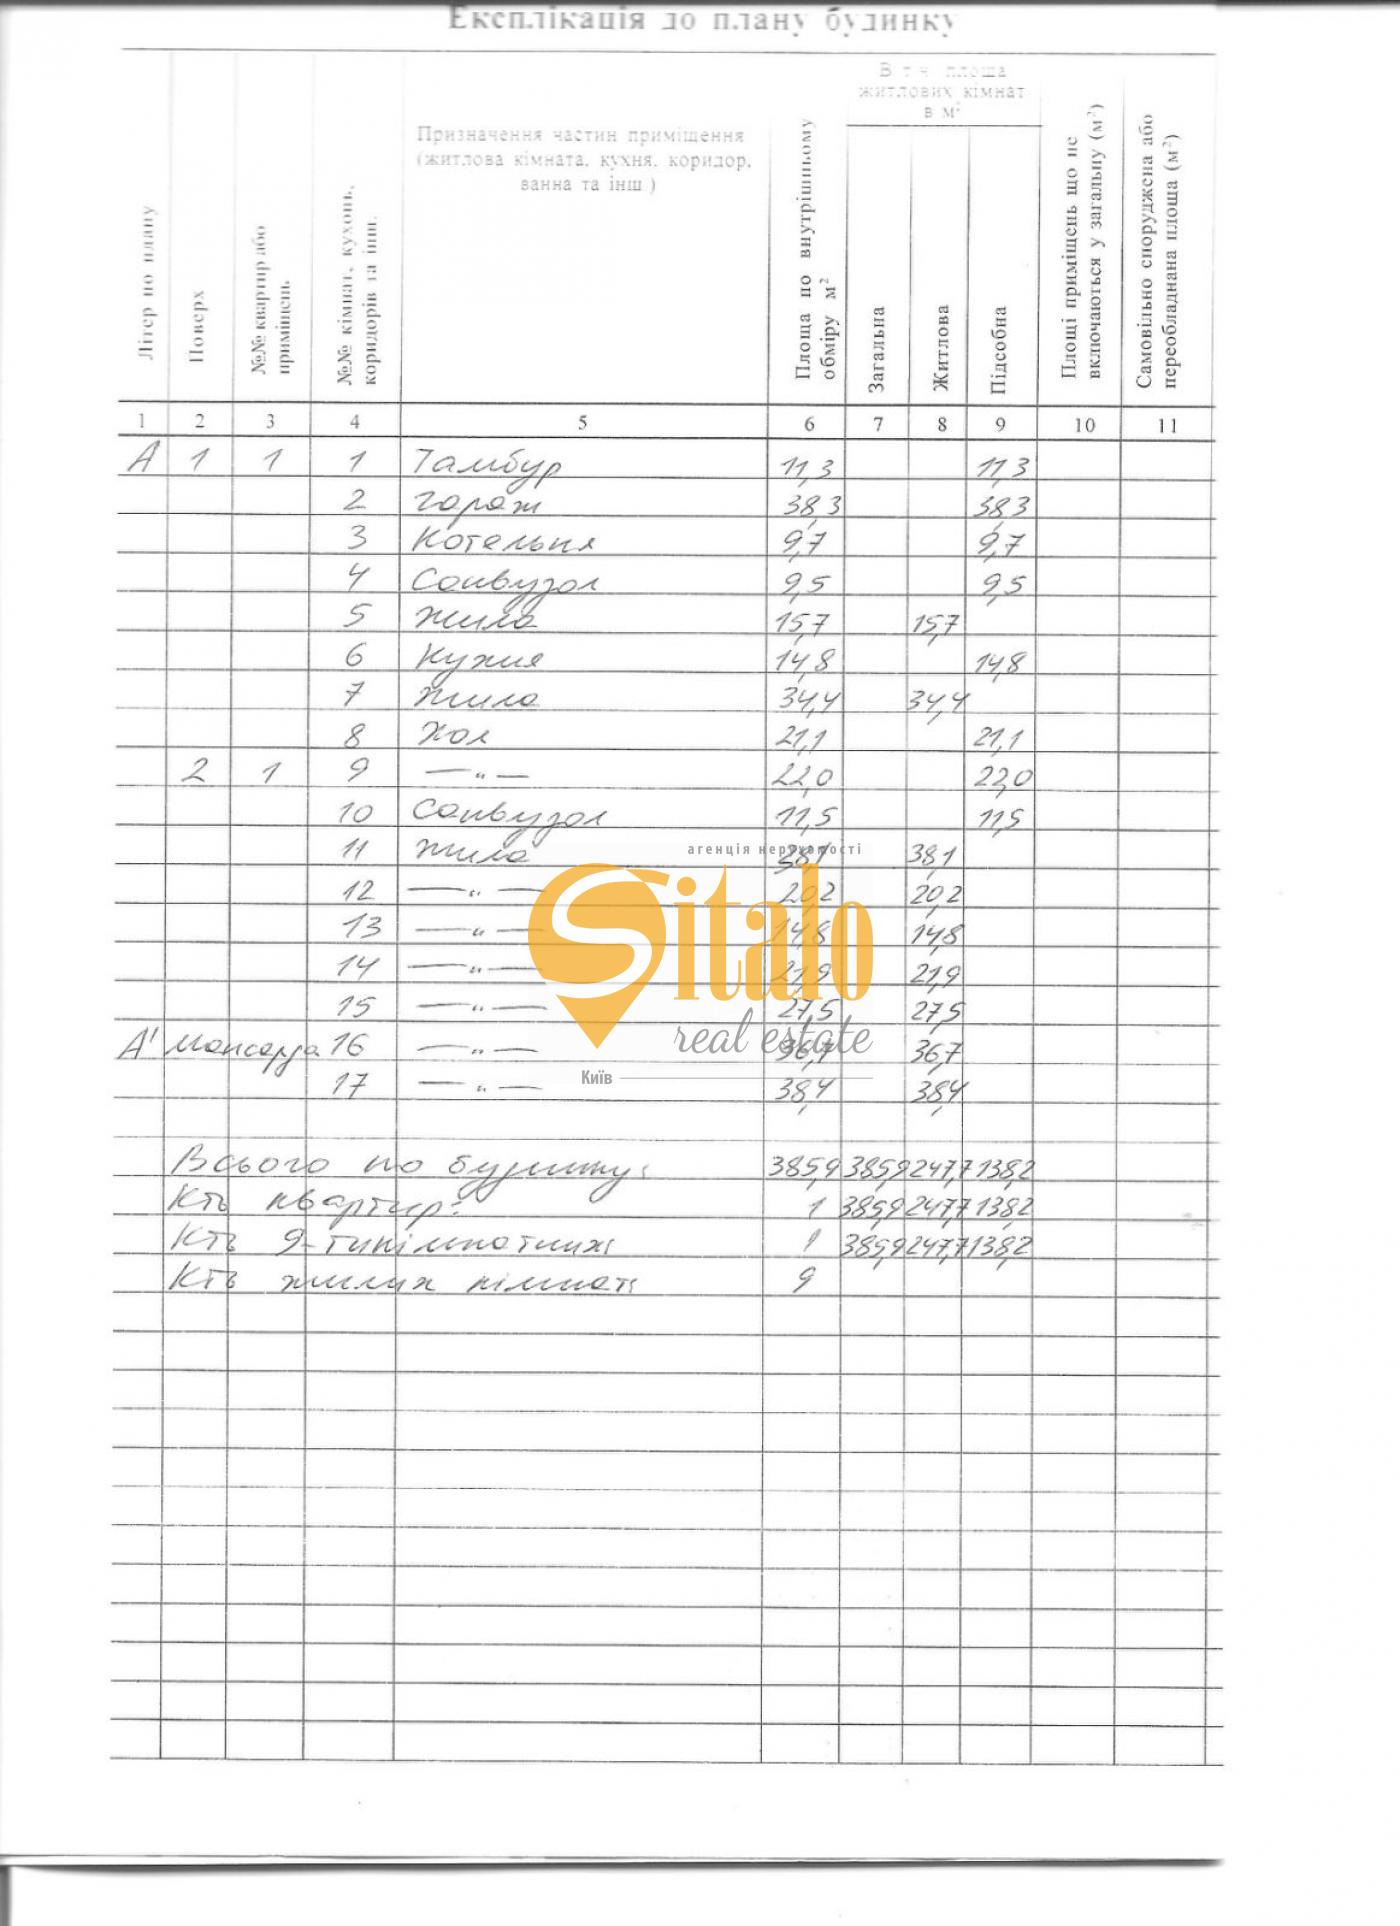 Експлікація до плану будинку
Літер по плану
Поверх
№№ квартир або приміщень
№№ кімнат, кухонь, коридорів та інш.
Призначення частин приміщення
(житлова кімната, кухня, коридор,
ванна та інш.)
Площа по внутрішньому обміру м²
В т.ч. площа
житлових кімнат
в м²
Загальна
Житлова
Підсобна
Площі приміщень що не включаються у загальну (м²)
Самовільно споруджена або переобладнана площа (м²)
1 2 3 4 5 6 7 8 9 10 11
А 1 1 1 Тамбур 11,3 11,3
2 гараж 38,3 38,3
3 Котельня 9,7 9,7
4 Санвузол 9,5 9,5
5 жила 15,7 15,7
6 Кухня 14,8 14,8
7 жила 34,4 34,4
8 Хол 21,1 21,1
2 1 9 —"— 22,0 22,0
10 Санвузол 11,5 11,5
11 жила 38,1 38,1
12 —"— 20,2 20,2
13 —"— 14,8 14,8
14 —"— 21,9 21,9
15 —"— 27,5 27,5
А' мансарда 16 —"— 36,7 36,7
17 —"— 38,4 38,4
Всього по будинку: 385,9 385,9 247,7 138,2
К-ть квартир: 1 385,9 247,7 138,2
К-ть 9-тикімнатних 1 385,9 247,7 138,2
К-ть жилих кімнат: 9
агенція нерухомості
Sitalo
real estate
Київ